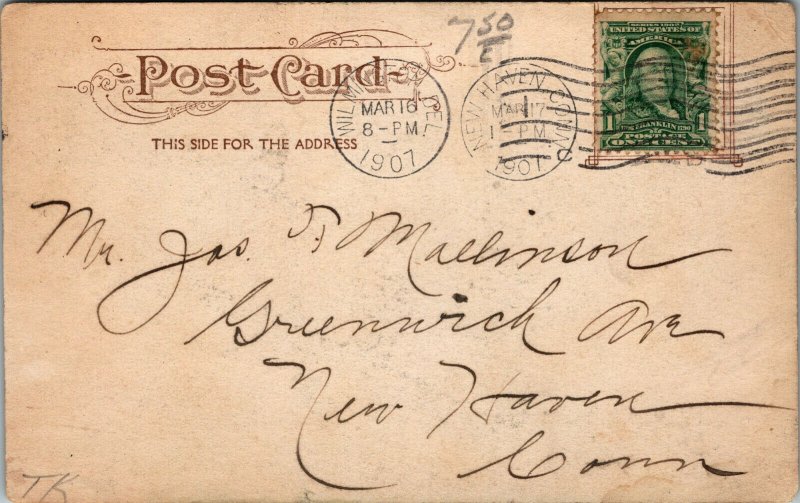 Post Card
THIS SIDE FOR THE ADDRESS
7 50
WILM DEL
MAR 16
8-PM
1907
NEW HAVEN CONN
MAR 17
PM
1907
C
SERIES 1902
UNITED STATES OF
AMERICA
1 FRANKLIN 1790 1
POSTAGE
ONE CENT
Mr. Jas. T. Mallinson
Greenwich Ave
New Haven
Conn
TK